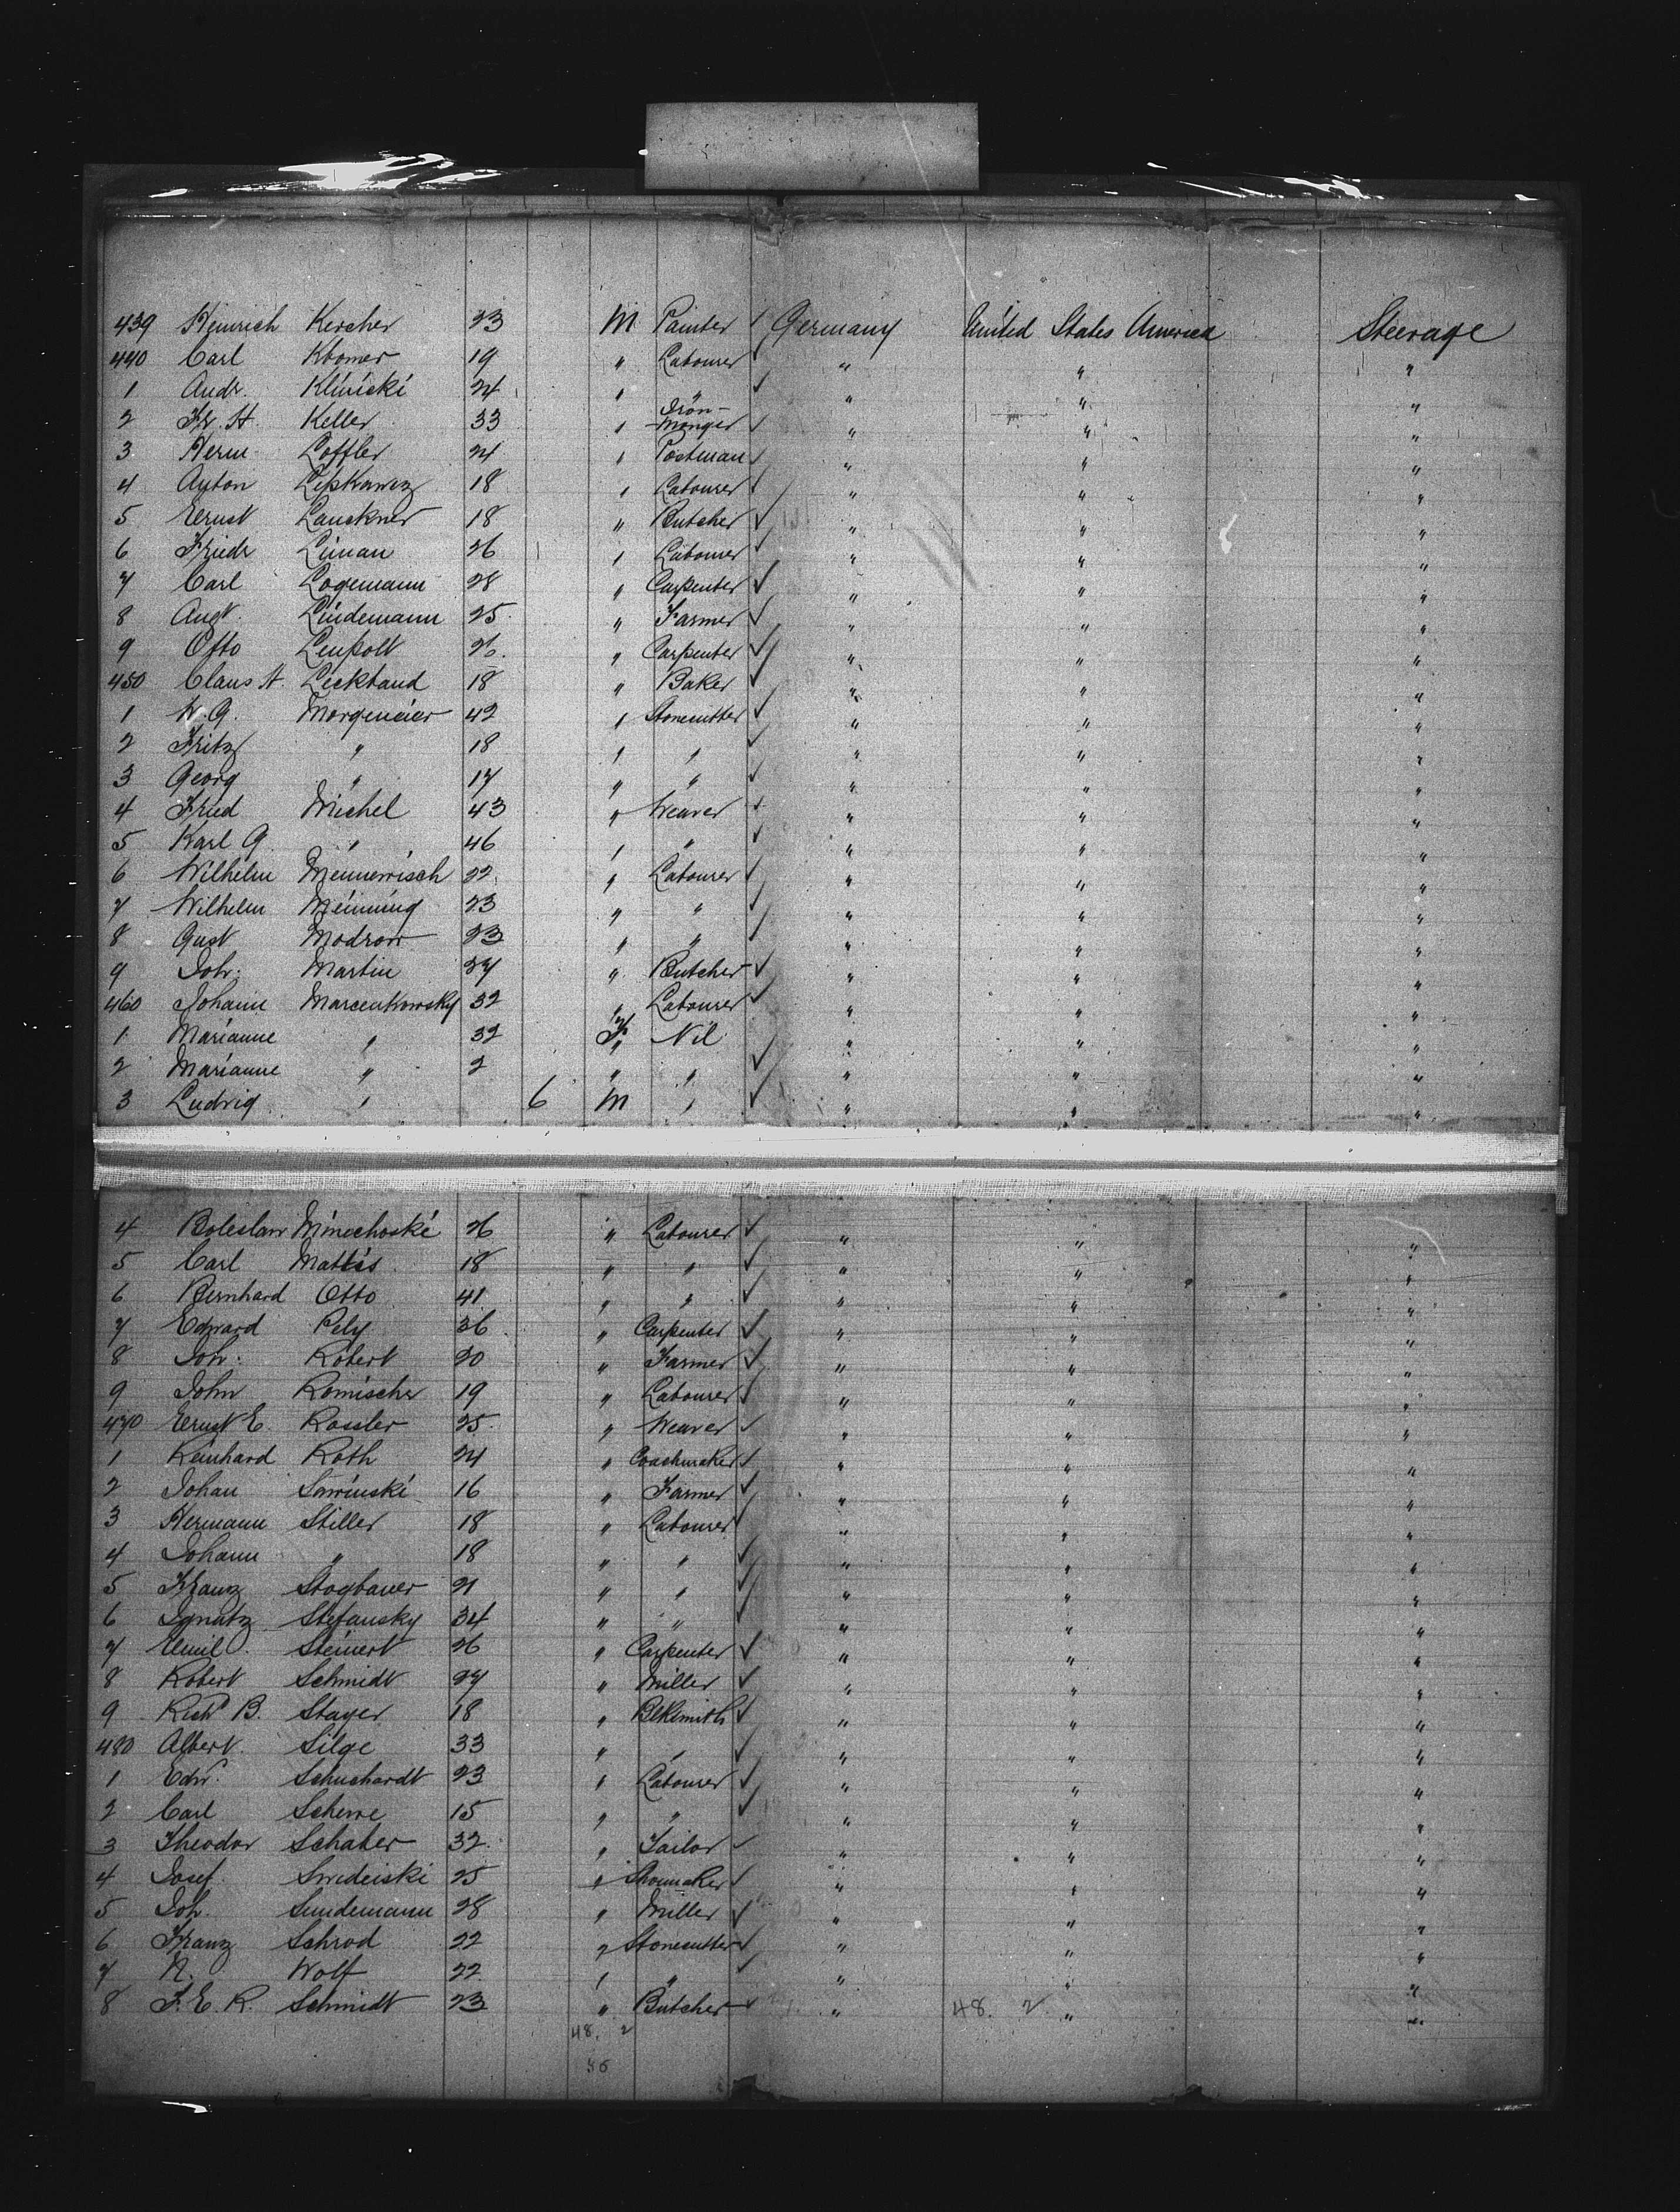 439 Heinrich Kercher 23 M Painter Germany United States America Steerage
440 Carl Kromer 19 " Labourer " " "
1 Andr. Klinicki 24 " " " " "
2 Fr. H. Keller 33 " Iron-monger " " "
3 Herm. Loffler 24 " Postman " " "
4 Anton 18 " Labourer " " "
5 Ernst Lauckner 18 " Butcher " " "
6 Friedr Liman 26 " Labourer " " "
7 Carl Logemann 28 " Carpenter " " "
8 Augt. Lindemann 25 " Farmer " " "
9 Otto Leupolt 26 " Carpenter " " "
450 Claus H. Leckband 18 " Baker " " "
1 W. G. Morgeneier 42 " Stonecutter " " "
2 Fritz " 18 " " " " "
3 Georg " 17 " " " " "
4 Fried Michel 43 " Weaver " " "
5 Karl G. " 46 " " " " "
6 Wilhelm 22 " Labourer " " "
7 Wilhelm Meinning 23 " " " " "
8 Gust Modrow 23 " " " " "
9 Joh. Martin 27 " Butcher " " "
460 Johann Marcenkowsky 32 " Labourer " " "
1 Marianne " 32 F Nil " " "
2 Marianne " 2 " " " " "
3 Ludwig " 6 M " " " "
4 Boleslaw Minochoski 26 " Labourer " " "
5 Carl Mattis 18 " " " " "
6 Bernhard Otto 41 " " " " "
7 Edward Pely 36 " Carpenter " " "
8 Joh: Robert 20 " Farmer " " "
9 John Romischer 19 " Labourer " " "
470 Ernst E. Rossler 25 " Weaver " " "
1 Reinhard Roth 24 " Coachmaker " " "
2 Johan Sawinski 16 " Farmer " " "
3 Hermann Stiller 18 " Labourer " " "
4 Johann " 18 " " " " "
5 Franz Stogbauer 21 " " " " "
6 Ignatz Stefansky 34 " " " " "
7 Emil Steinert 26 " Carpenter " " "
8 Robert Schmidt 27 " Miller " " "
9 Richd B. Stayer 18 " Blksmith " " "
480 Albert Silge 33 " " " " "
1 Edw. Schuchardt 23 " Labourer " " "
2 Carl Scherre 15 " " " " "
3 Theodor Schaber 32 " Tailor " " "
4 Josef Swideiski 25 " Shoemaker " " "
5 Joh. Sundemann 28 " Miller " " "
6 Franz Schrod 22 " Stonecutter " " "
7 N. Wolf 22 " " " " "
8 F. E. R. Schmidt 23 " Butcher " 48. 2 " "
48. 2